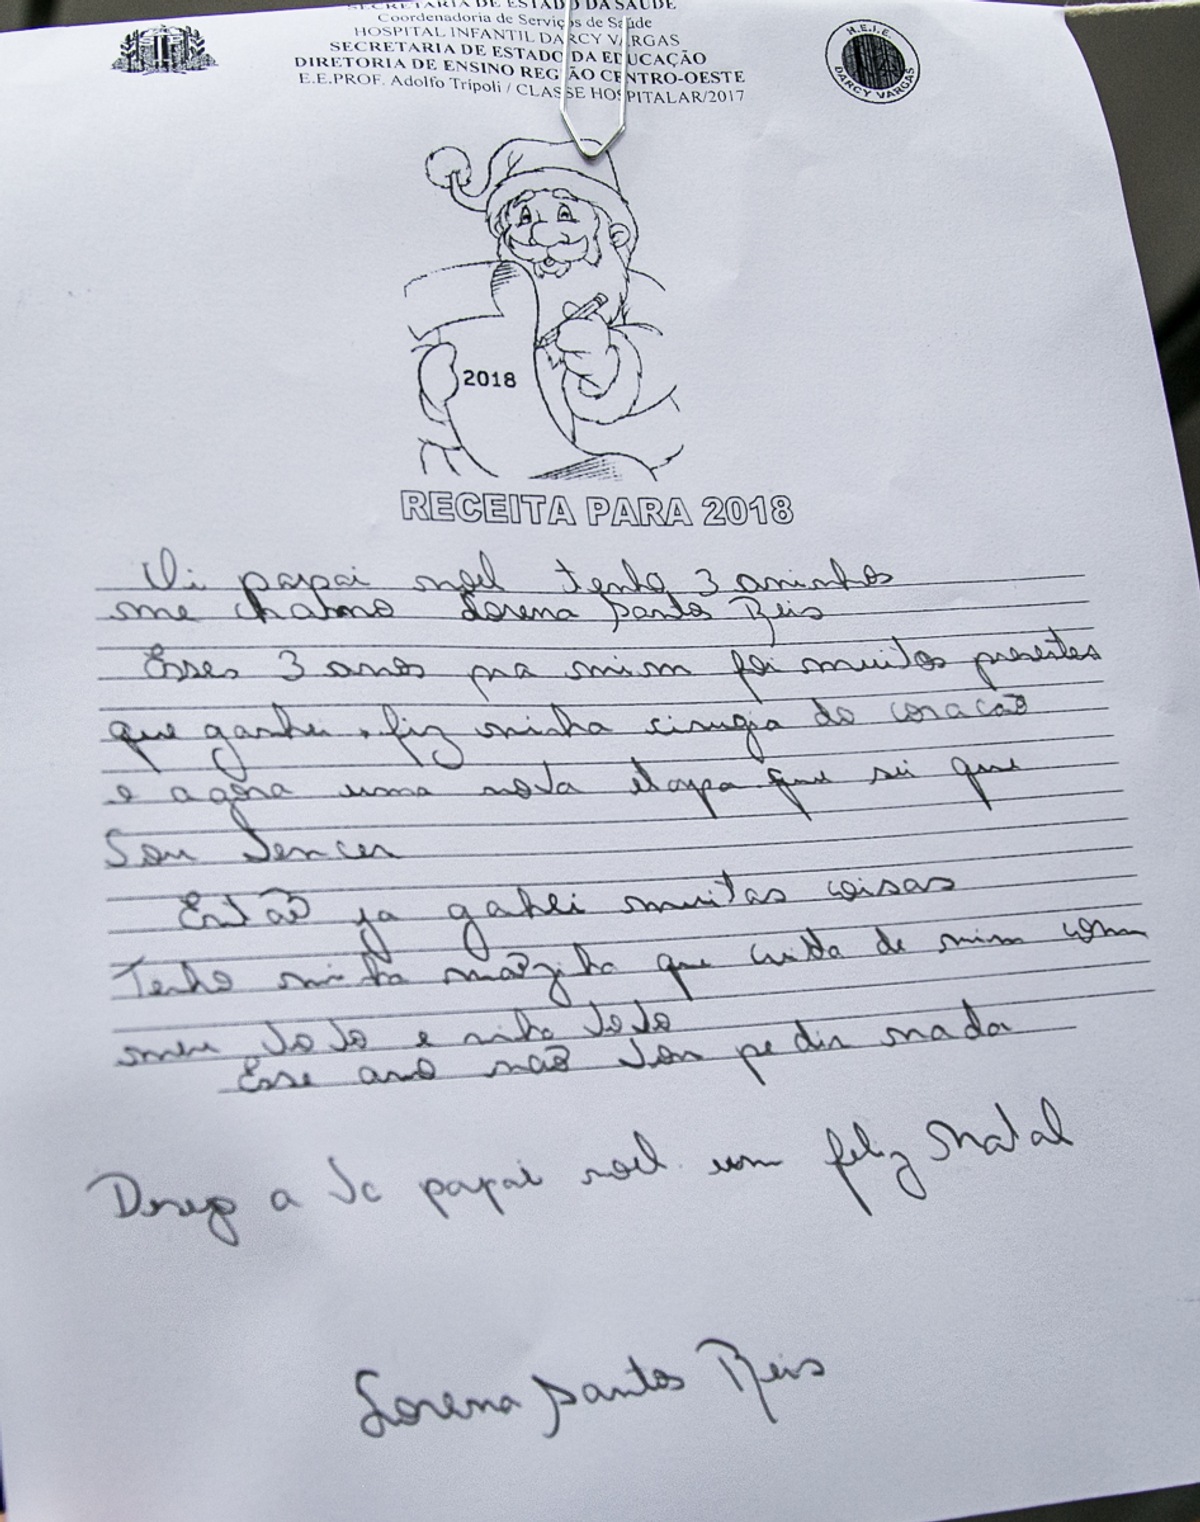 SECRETARIA DE ESTADO DA SAÚDE
Coordenadoria de Serviços de Saúde
HOSPITAL INFANTIL DARCY VARGAS
SECRETARIA DE ESTADO DA EDUCAÇÃO
DIRETORIA DE ENSINO REGIÃO CENTRO-OESTE
E.E.PROF. Adolfo Tripoli / CLASSE HOSPITALAR/2017
H.E.I.E.
DARCY VARGAS
2018
RECEITA PARA 2018
Oi papai noel tenho 3 aninhos
me chamo Lorena Santos Reis
Esses 3 anos pra mim foi muitos presentes
que ganhei, fiz minha cirugia do coracão
e agora uma nova etapa que sei que
Vou Vencer
Então ja gahei muitas coisas
Tenho minha mãezinha que cuida de mim com
meu vovo e minha vovo
Esse ano não vou pedir nada
Desejo a vc papai noel um feliz Natal
Lorena Santos Reis